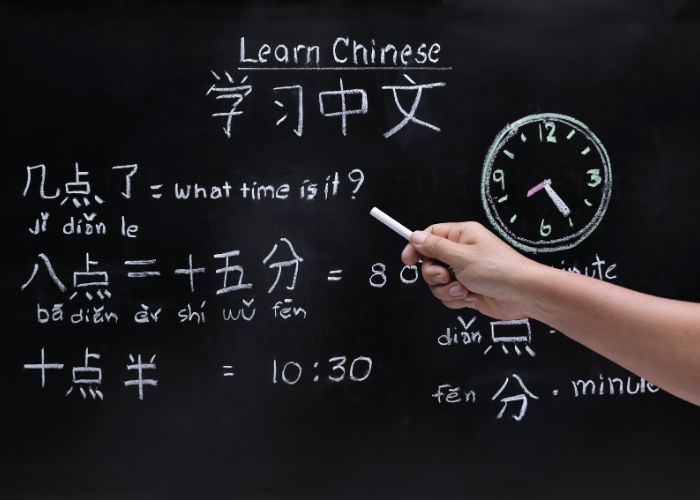 Learn Chinese
学习中文
12
9 3
6
几点了 = what time is it?
jǐ diǎn le
八点二十五分 = 8
bā diǎn èr shí wǔ fēn
diǎn 点 ·
十点半 = 10:30
fēn 分 · minute